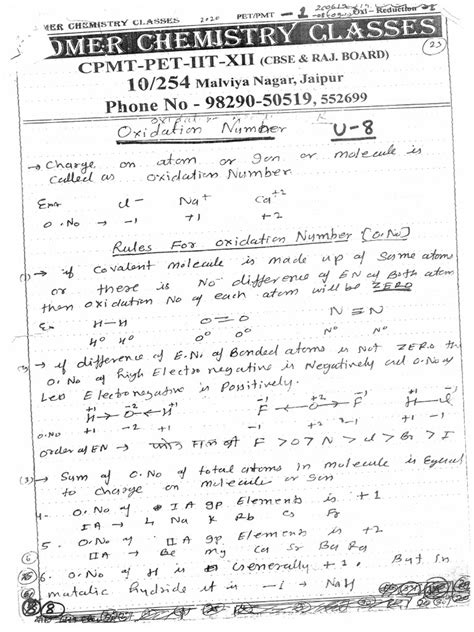 OMER CHEMISTRY CLASSES 2020 PET/PMT - 1 Oxi - Reduction
OMER CHEMISTRY CLASSES
23
CPMT-PET-IIT-XII (CBSE & RAJ. BOARD)
10/254 Malviya Nagar, Jaipur
Phone No - 98290-50519, 552699
Oxidation Number U-8
→ Charge on atom or Ion or molecule is
called as oxidation Number
Exm Cl⁻ Na⁺ Ca⁺²
O.No → -1 +1 +2
Rules For oxidation Number [O.No]
(1) → if covalent molecule is made up of Same atom
or there is No difference of EN of Both atom
then oxidation No of each atom will be ZERO
Ex H-H O=O N≡N
H⁰ H⁰ O⁰ O⁰ N⁰ N⁰
→ if difference of E.No of Bonded atoms is Not ZERO the
O.No of high Electro negative is Negatively and O.No of
Less Electronegative is Possitively.
+1 -2 +1 -1 +2 -1 +1 -1
H→O←H F←O→F H-Cl
O.No +1 -2 +1 -1 +2 -1 +1 -1
order of EN → F > O > N > Cl > Br > I
(3) → Sum of O.No of total atoms in molecule is Equal
to charge on molecule or Ion
4. O.No of IA gp Elements is +1
IA → Li Na K Rb Cs Fr
5. O.No of IIA gp Elements is +2
IIA → Be Mg Ca Sr Ba Ra
6. O.No of H is Generally +1. But In
matalic hydride it is -1 → NaH
8 8